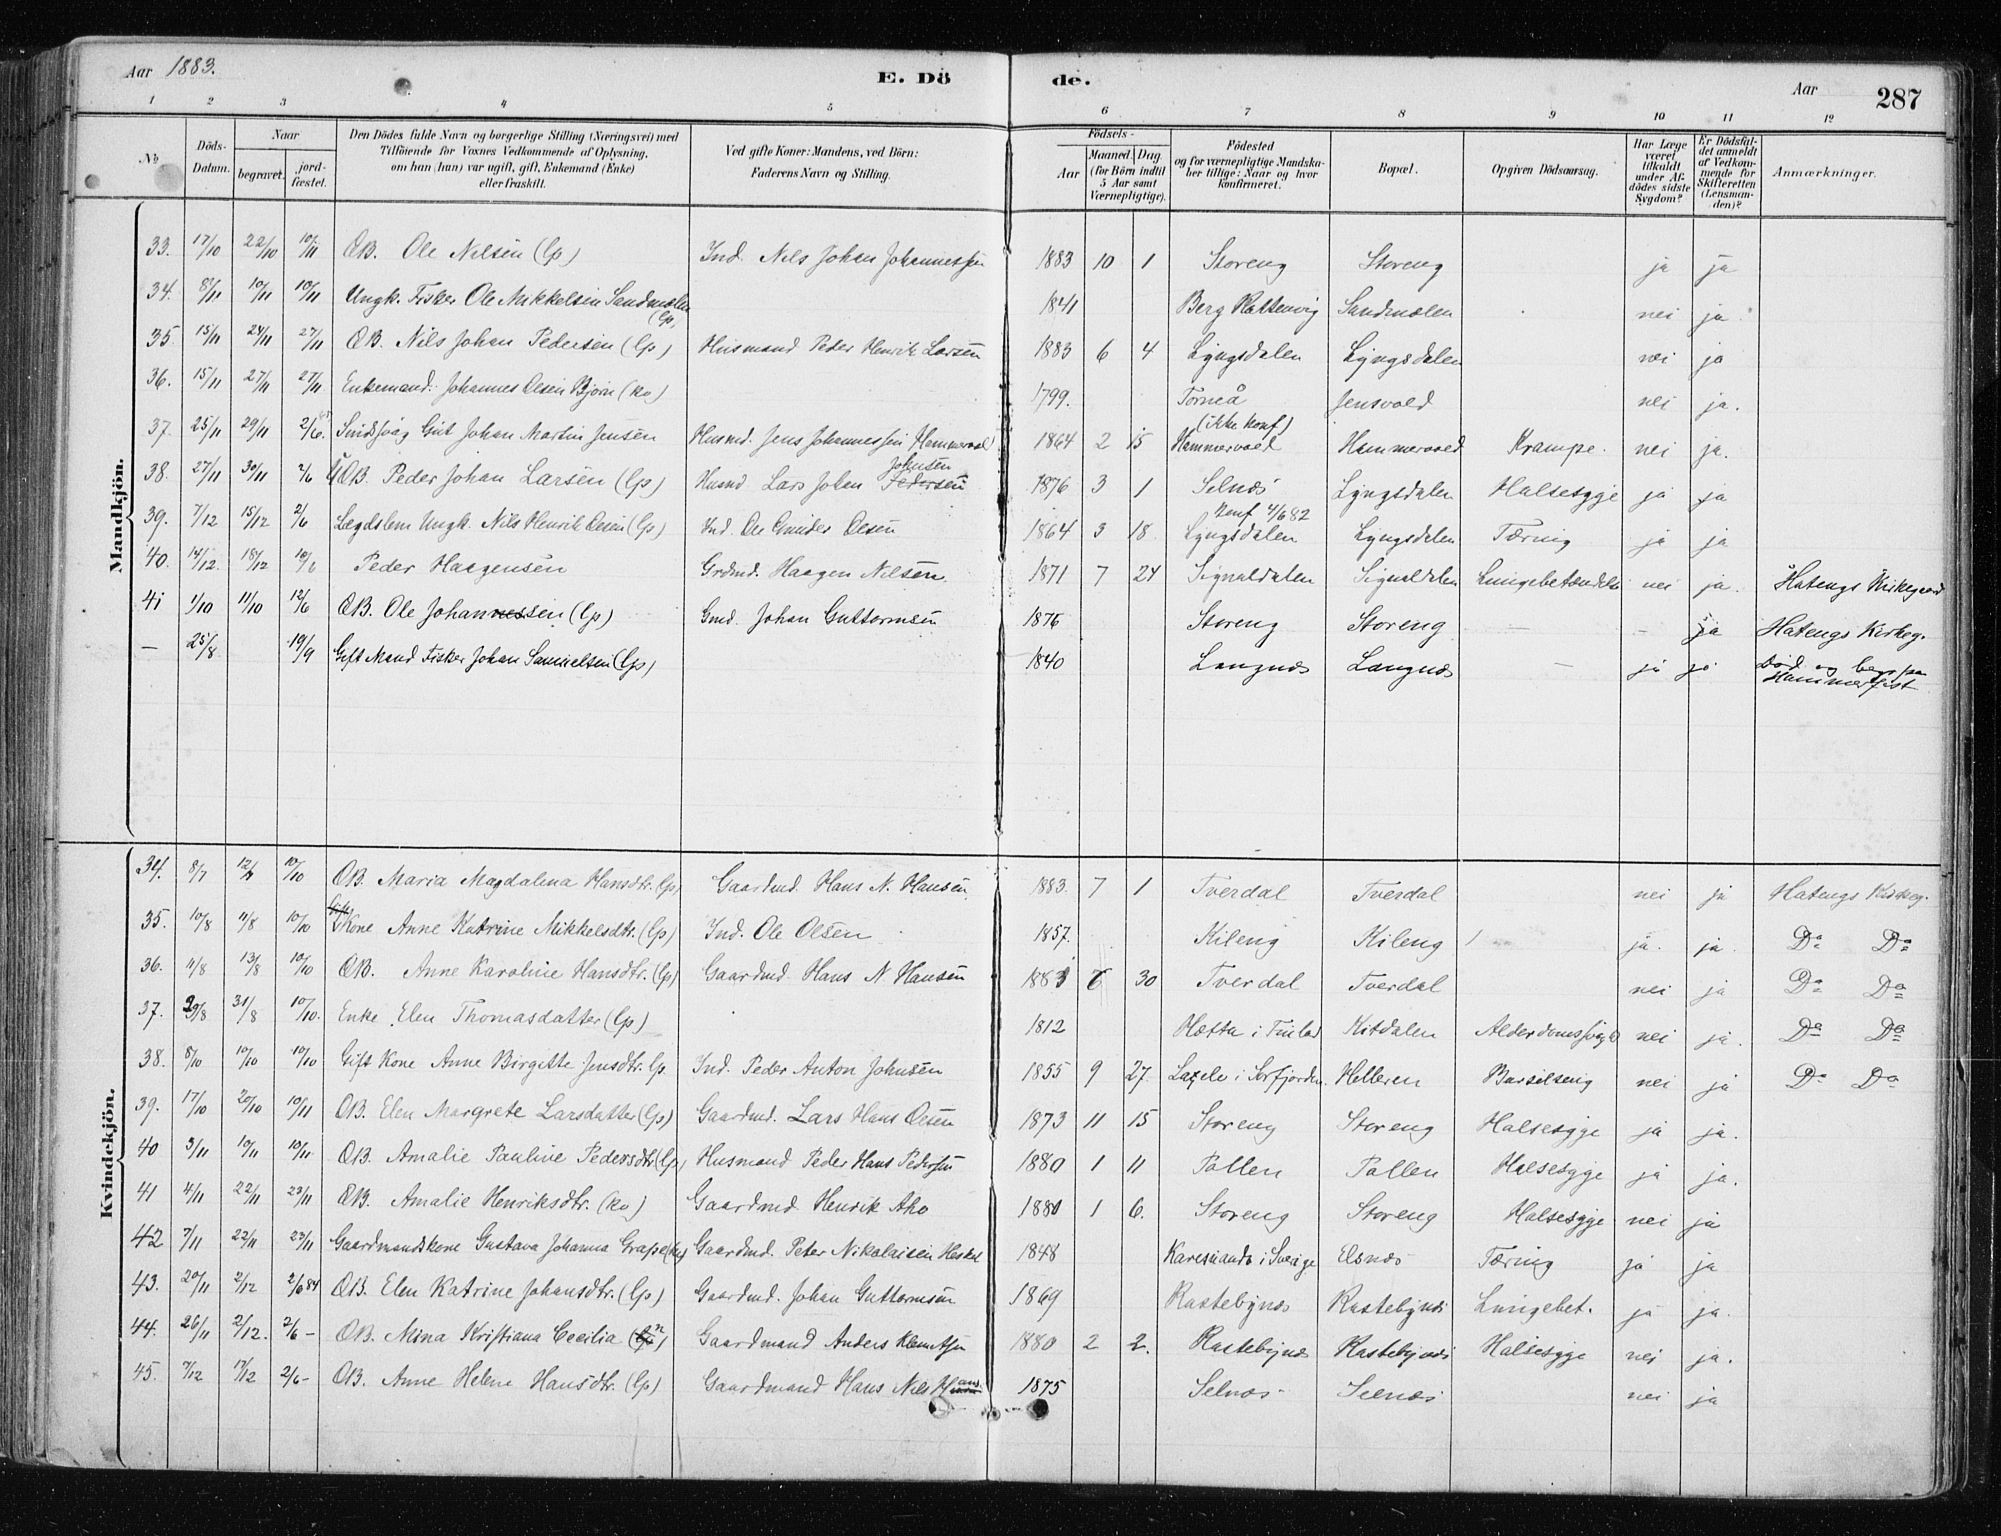 Aar 1883. E. Döde. Aar 287
1 2 3 4 5 6 7 8 9 10 11 12
No
Döds-Datum.
Naar begravet. jordfæstet.
Den Dödes fulde Navn og borgerlige Stilling (Næringsvei) med Tilföiende for Voxnes Vedkommende af Oplysning, om han (hun) var ugift, gift, Enkemand (Enke) eller fraskilt.
Ved gifte Koner: Mandens, ved Börn: Faderens Navn og Stilling.
Födsels- Aar Maaned. Dag. (for Börn indtil 5 Aar samt Værnepligtige).
Födested og for værnepligtige Mandskaber tillige: Naar og hvor konfirmeret.
Bopæl.
Opgiven Dödsaarsag.
Har Læge været tilkaldt under Afdödes sidste Sygdom?
Er Dödsfaldet anmeldt af Vedkommende for Skifteretten (Lensmanden)?
Anmærkninger.
Mandkjön.
33. 17/10 22/10 10/11 ÆB. Ole Nilsen (lp) Ind. Nils Johan Johannessen 1883 10 1 Storeng Storeng ja ja
34. 8/11 10/11 10/11 Ungk. Fisker Ole Mikkelsen Sandmælen (lp) 1841 Berg Sandmælen nei ja
35. 15/11 24/11 27/11 ÆB. Nils Johan Pedersen (lp) Husmand Peder Henrik Larsen 1883 6 4 Lyngsdalen Lyngsdalen nei ja
36. 15/11 27/11 27/11 Enkemand: Johannes Olsen Bjørn (kv) 1799. Torneå Jensvold nei ja.
37. 25/11 29/11 2/6 Sindssvag Gut Johan Martin Jensen Husmd. Jens Johannessen Hammervold 1864 2 15 (ikke konf) Hammervold Hammervold Krampe. nei ja.
38. 27/11 30/11 2/6 ÆB. Peder Johan Larsen (lp) Husmd Lars Johan Pedersen Johnsen 1876 3 1 Selnæs Lyngsdalen Halsesyge ja ja
39. 7/12 15/12 2/6 Lægdslem Ungk. Nils Henrik Olsen (lp) Ind. Ole Olsen 1864 3 18 Konf 4/6 82 Lyngsdalen Lyngsdalen Tæring ja ja
40. 14/12 18/12 10/6 Peder Haagensen Grdmd. Haagen Nilsen 1871 7 24 Signaldalen Signaldalen Lungebetændelse nei ja. Hatengs Kirkegaard
41 1/10 11/10 12/6 ÆB. Ole Johannessen (lp) Gmd. Johan Guttormsen 1876 Storeng Storeng — - ja Hatengs Kirkeg.
— 25/8 19/9 Gift Mand Fisker Johan Samuelsen (lp) 1840 Langnæs Langnæs — ja ja Død og begr. paa Hammerfest
Kvindekjön.
34. 8/7 12/8 10/10 ÆB. Maria Magdalena Hansdtr. (lp) Gaardmd. Hans N. Hansen 1883. 7 1 Tverdal Tverdal nei ja Hatengs Kirkeg.
35. 10/8 11/8 10/10 Gift Kone Anne Katrine Mikkelsdtr. (lp) Ind. Ole Olsen 1857. Kileng Kileng ja. ja. Do Do
36. 11/8 13/8 10/10 ÆB. Anne Karoline Hansdtr. (lp) Gaardmd. Hans N Hansen 1883 6 30 Tverdal Tverdal nei ja Do Do
37. 29/8 31/8 10/10. Enke Elen Thomasdatter (lp) 1812 Hætta i Finland Kitdalen nei ja. Do Do
38. 8/10 10/10 10/10 Gift Kone Anne Birgitte Jensdtr. lp. Ind. Peder Anton Johnsen 1855 9 27. i Sørfjorden Helleren Barselseng nei ja Do Do
39. 17/10 20/10 10/11 ÆB. Elen Margrete Larsdatter (lp) Gaardmd. Lars Hans Olsen 1873 11 15 Storeng Storeng Halsesyge ja ja.
40 3/11 10/11 10/11 ÆB. Amalie Pauline Pedersdtr. (lp) Husmand Peder Hans Pedersen 1880 1 11 Pollen Pollen Halsesyge ja ja.
41 4/11 22/11 23/11 ÆB. Amalie Henriksdtr. (kv) Gaardmd Henrik Aho 1880 1 6. Storeng Storeng Halsesyge nei ja
42 7/11 22/11 23/11 Gaardmandskone Gustava Johanna Grape (kv) Gaardmd. Peter Nikolaisen 1848 Karesuando i Sverige Elsnæs Tæring ja ja
43. 20/11 2/12 2/6 84 ÆB. Elen Katrine Johansdtr. (lp) Gaardmd. Johan Guttormsen 1869 Rastebynæs Rastebynæs Lungebet. ja ja.
44. 26/11 2/12. 2/6 - ÆB. Mina Kristiana Cecilia Gaardmand Anders Klemetsen 1880 2 2. Rastebynæs Rastebynæs Halsesyge nei ja.
45. 7/12 17/12 2/6 - ÆB. Anne Helene Hansdtr. (lp) Gaardmand Hans Nils 1875 Selnæs Selnæs nei ja